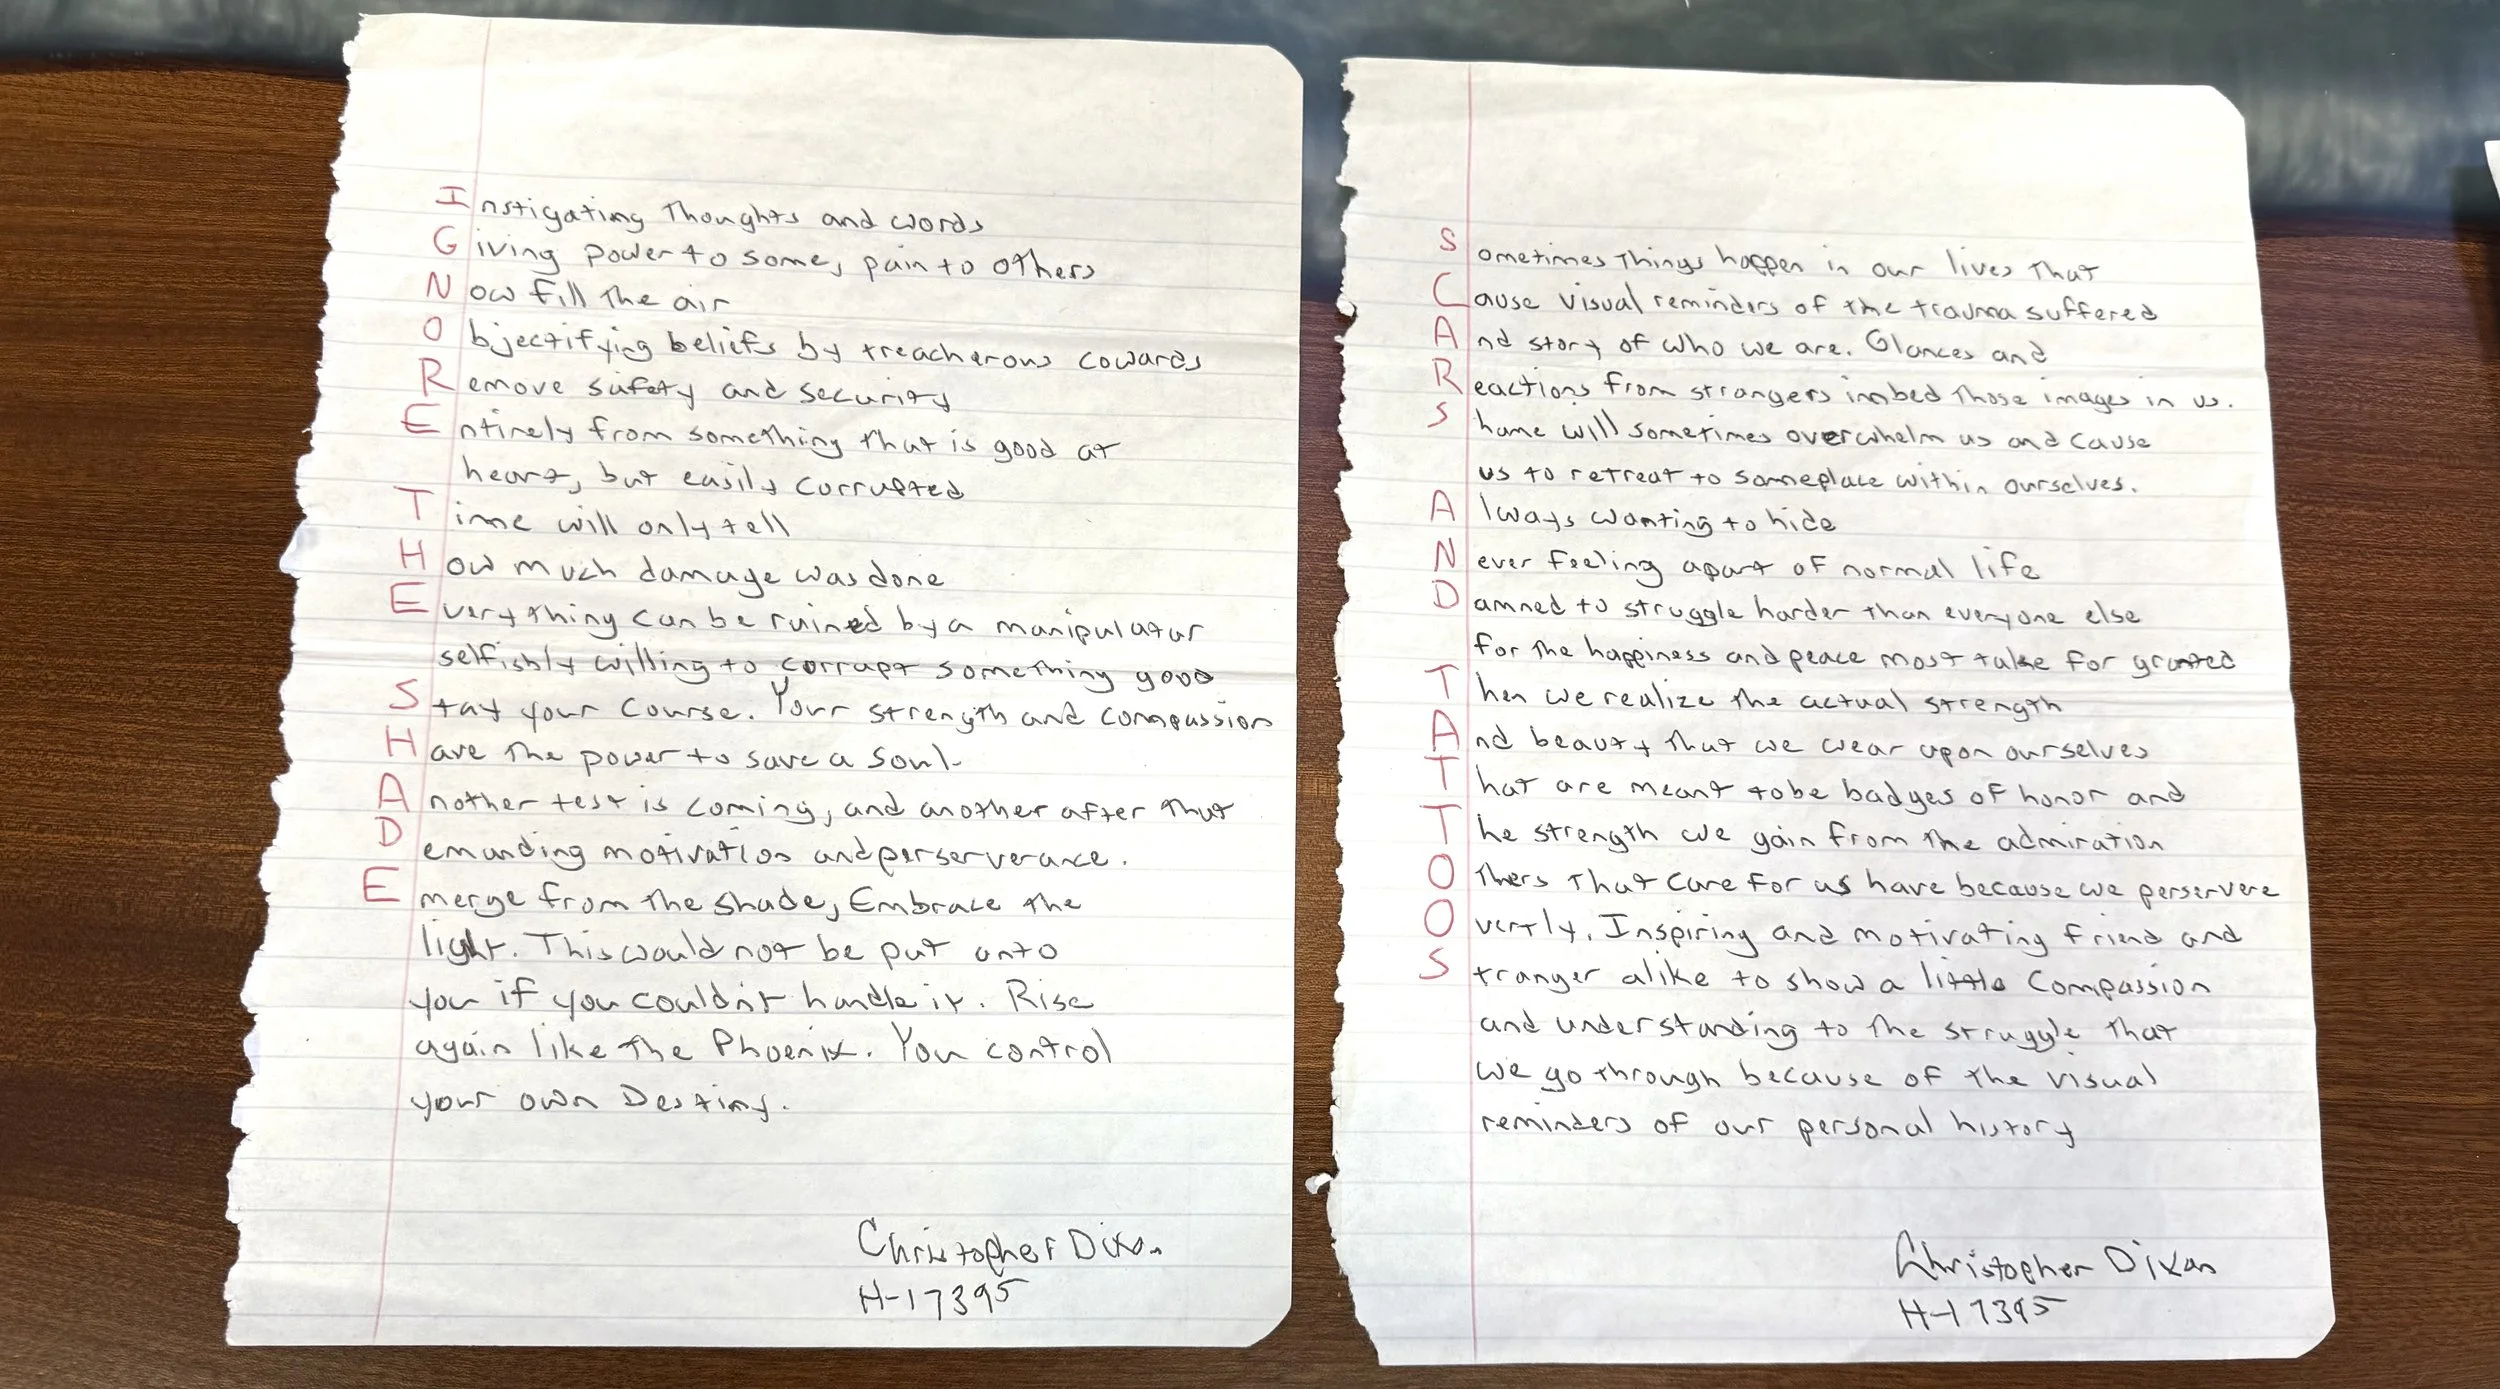 Instigating Thoughts and words
Giving power to some, pain to others
Now fill The air
Objectifying beliefs by treacherous cowards
Remove safety and security
Entirely from something that is good at
heart, but easily corrupted
Time will only tell
How much damage was done
Everything can be ruined by a manipulator
selfishly willing to corrupt something good
Stay your course. Your strength and compassion
Have The power to save a soul.
Another test is coming, and another after that
Demanding motivation and perserverance.
Emerge from The shade, Embrace The
light. This would not be put onto
you if you couldn't handle it. Rise
again like The Phoenix. You control
your own Destiny.
Christopher Dixon
H-17395
Sometimes Things happen in our lives That
Cause visual reminders of the trauma suffered
And story of who we are. Glances and
Reactions from strangers imbed Those images in us.
Shame will sometimes overwhelm us and cause
us to retreat to someplace within ourselves.
Always wanting to hide
Never feeling apart of normal life
Damned to struggle harder than everyone else
for The happiness and peace most take for granted
Then we realize the actual strength
And beauty that we wear upon ourselves
That are meant to be badges of honor and
The strength we gain from The admiration
Others That care for us have because we perservere
Overtly. Inspiring and motivating friend and
Stranger alike to show a little Compassion
and understanding to The struggle that
we go through because of the visual
reminders of our personal history
Christopher Dixon
H-17395